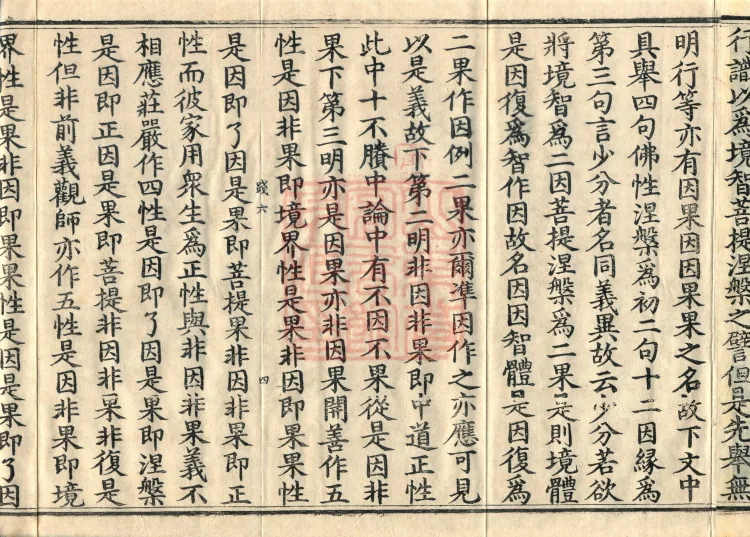 行識以為境智菩提涅槃之譬但是先舉無
明行等亦有因果因因果果之名故下文中
具舉四句佛性涅槃為初二句十二因緣為
第三句言少分者名同義異故云少分若欲
將境智為二因菩提涅槃為二果是則境體
是因復為智作因故名因因智體是因復為
二果作因例二果亦爾準因作之亦應可見
以是義故下第二明非因非果即中道正性
此中十不牒中論中有不因不果從是因非
果下第三明亦是因果亦非因果開善作五
性是因非果即境界性是果非因即果果性
踐六
四
是因即了因是果即菩提果非因非果即正
性而彼家用眾生為正性與非因非果義不
相應莊嚴作四性是因即了因是果即涅槃
是因即正因是果即菩提非因非果非復是
性但非前義觀師亦作五性是因非果即境
界性是果非因即果果性是因是果即了因